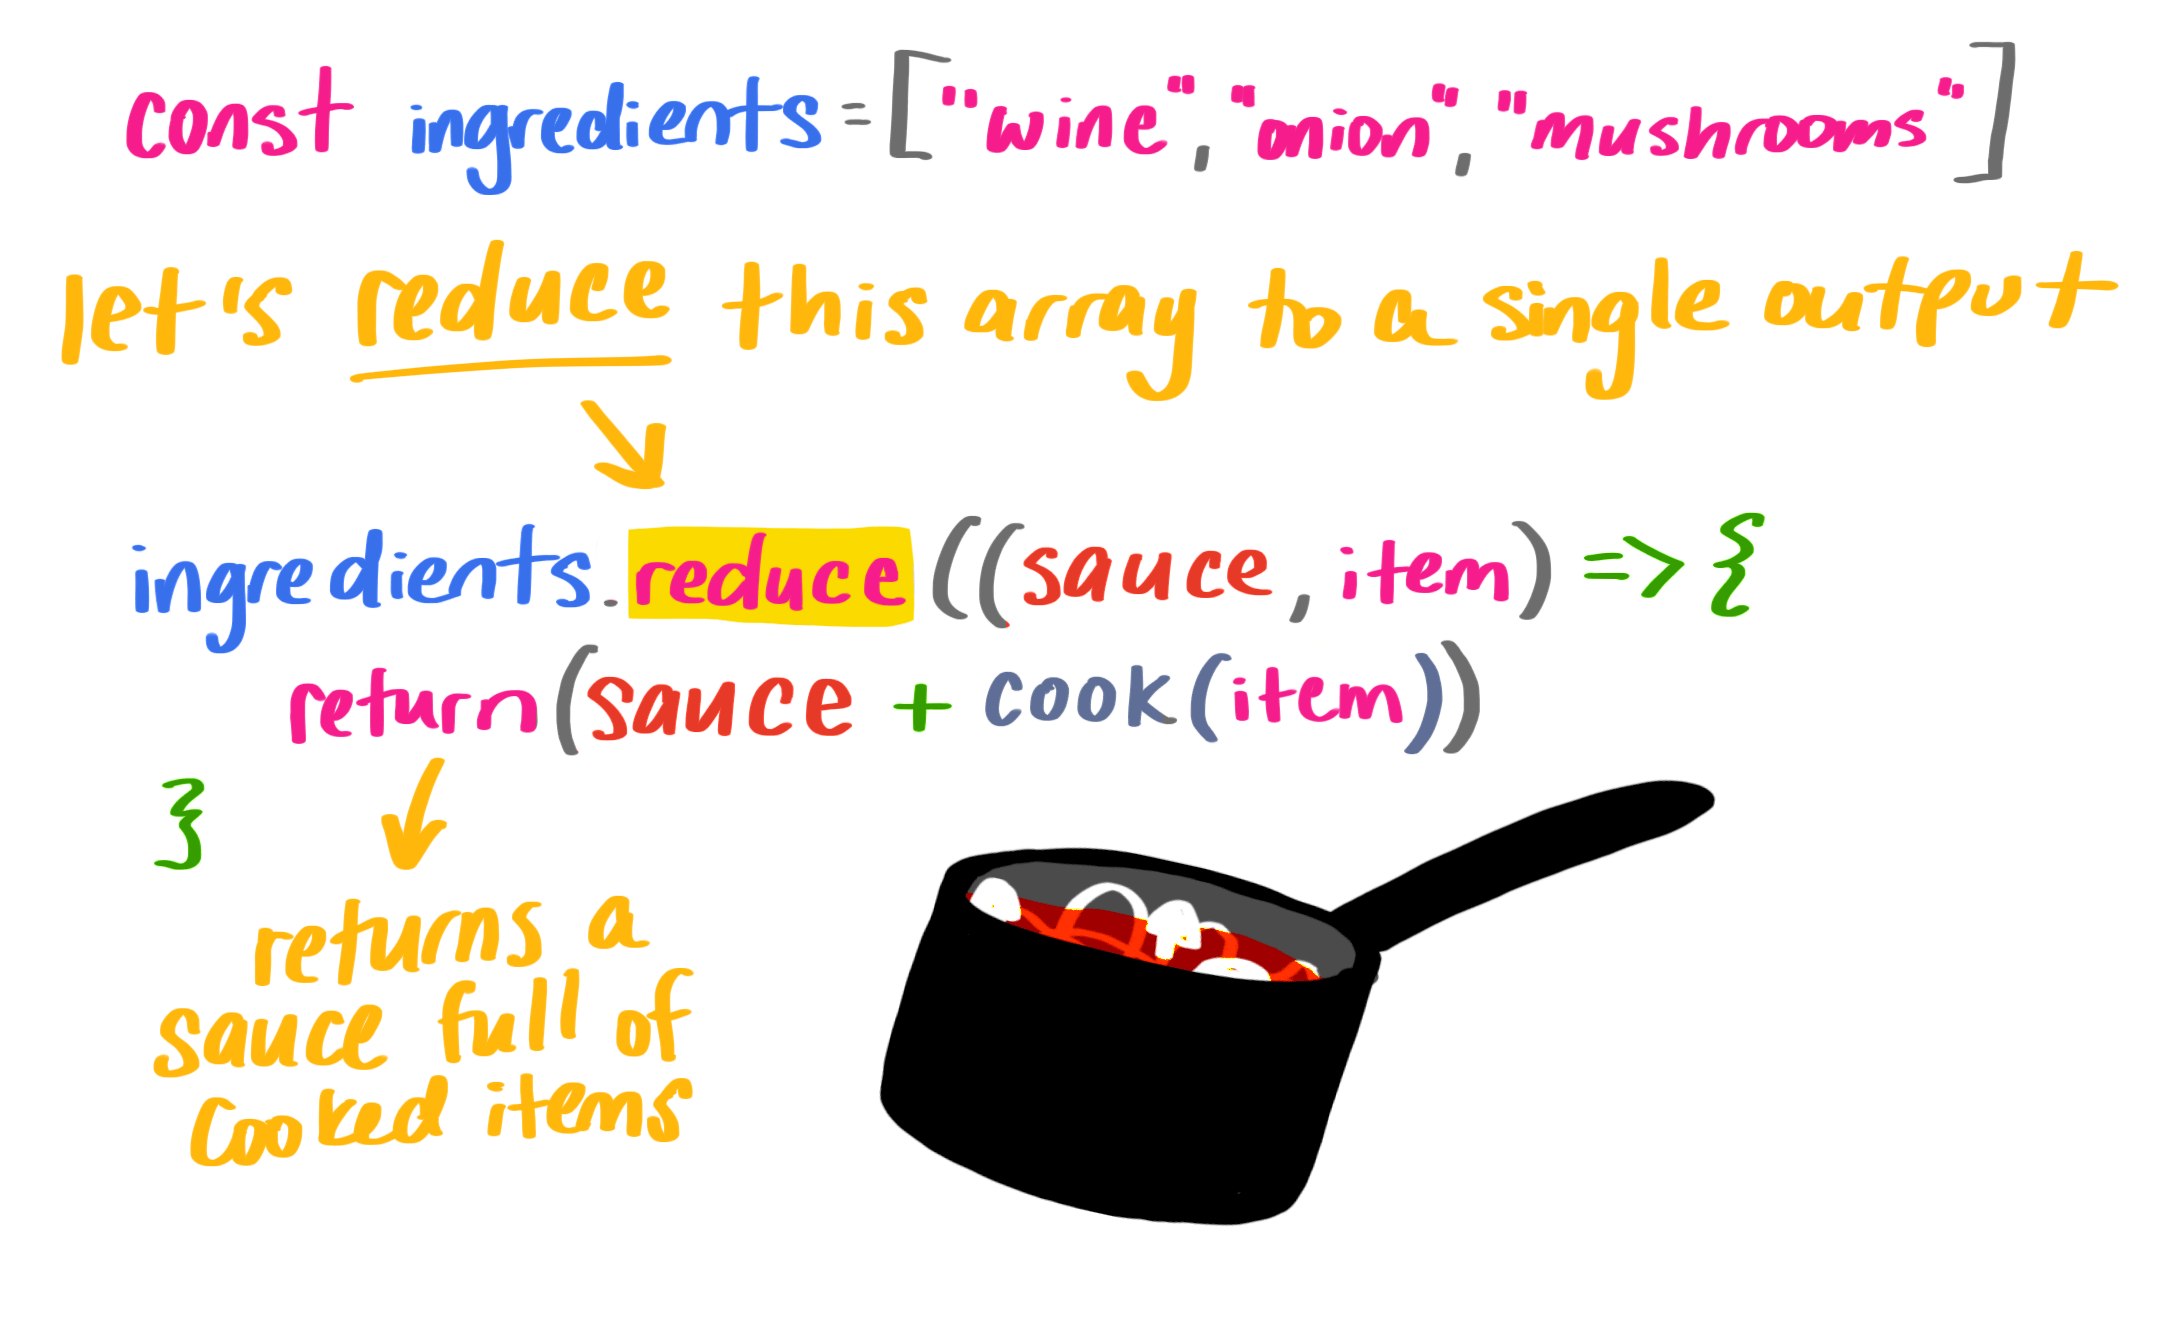 const ingredients = ["wine", "onion", "mushrooms"]
let's reduce this array to a single output
ingredients.reduce((sauce, item) => {
return(sauce + cook(item))
}
returns a
sauce full of
cooked items